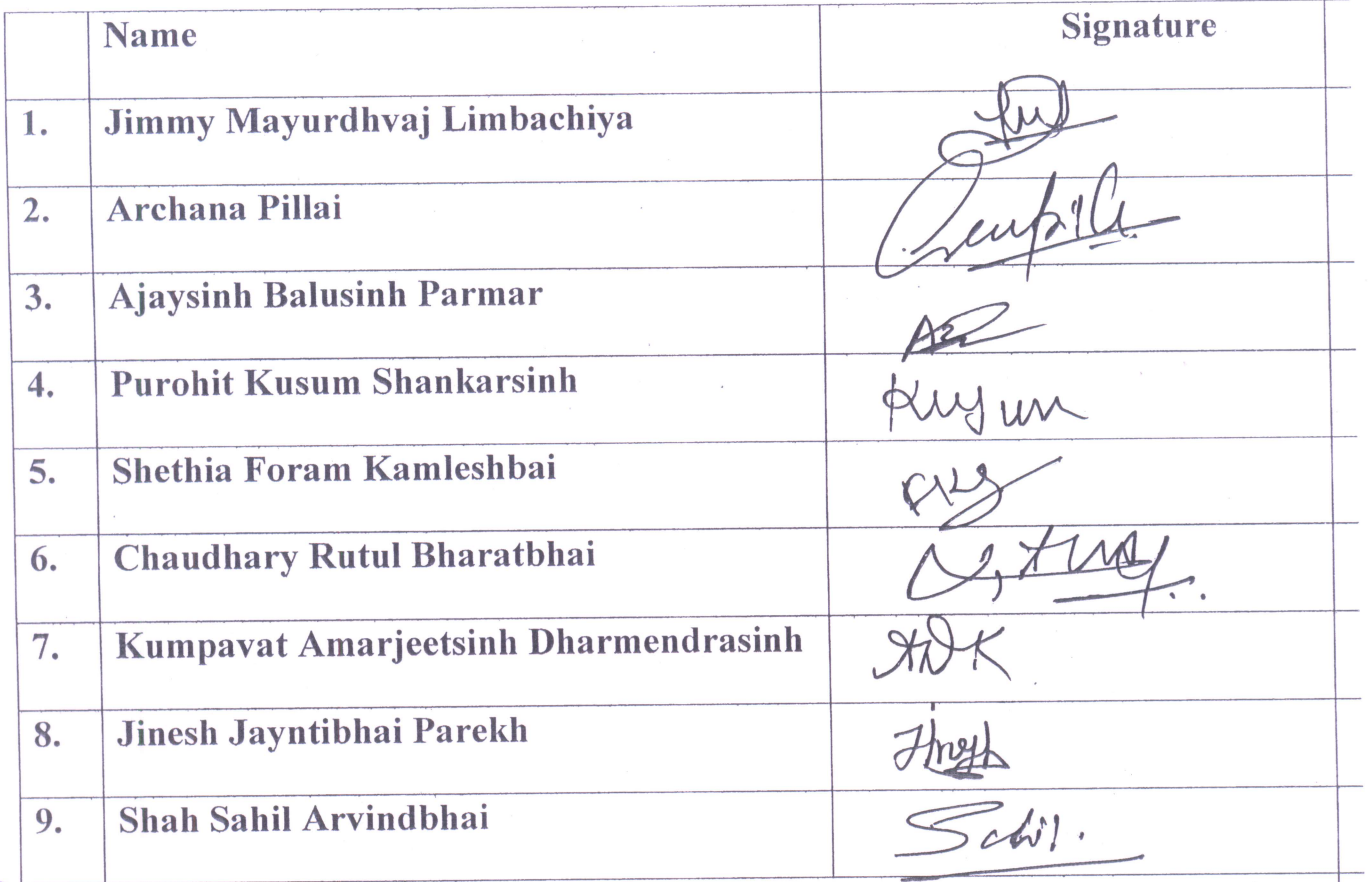 Name Signature
1. Jimmy Mayurdhvaj Limbachiya
2. Archana Pillai
3. Ajaysinh Balusinh Parmar
4. Purohit Kusum Shankarsinh Kusum
5. Shethia Foram Kamleshbai
6. Chaudhary Rutul Bharatbhai
7. Kumpavat Amarjeetsinh Dharmendrasinh ADK
8. Jinesh Jayntibhai Parekh Jinesh
9. Shah Sahil Arvindbhai Sahil.